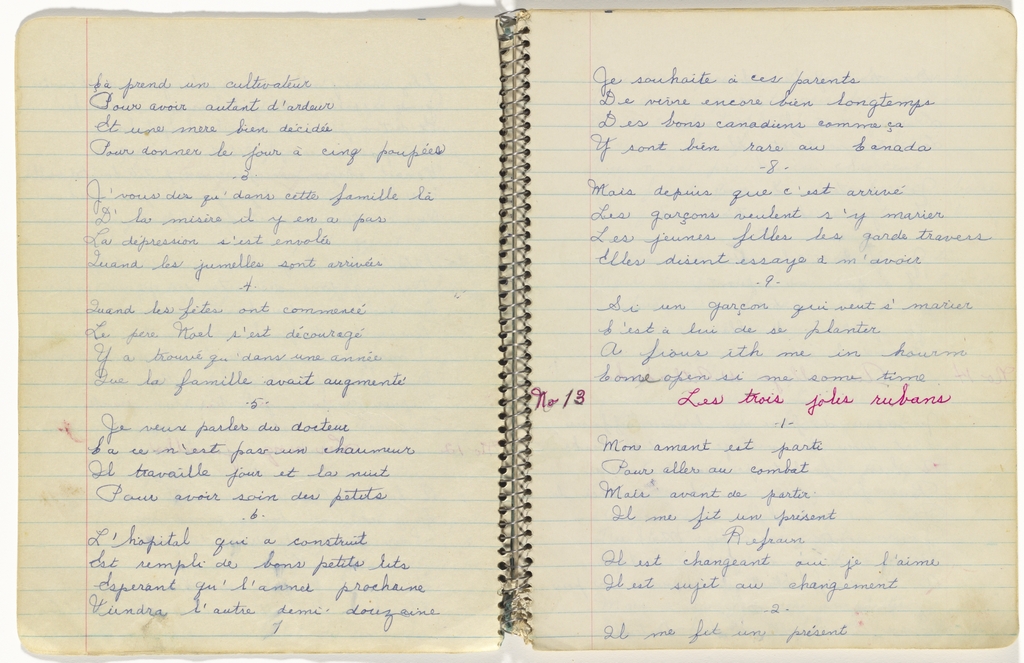 Ça prend un cultivateur
Pour avoir autant d'ardeur
Et une mere bien décidée
Pour donner le jour à cinq poupées
-3-
J'vous dis qu'dans cette famille là
D'la misère il y en a pas
La dépression s'est envolée
Quand les jumelles sont arrivées
-4-
Quand les fêtes ont commencé
Le pere Noel s'est découragé
Y a trouvé qu'dans une année
Que la famille avait augmenté
-5-
Je veux parler du docteur
Ça ce n'est pas un chaumeur
Il travaille jour et la nuit
Pour avoir soin des petits
-6-
L'hopital qui a construit
Est rempli de bons petits lits
Esperant qu'l'année prochaine
Viendra l'autre demi-douzaine
7
Je souhaite à ces parents
De vivre encore bien longtemps
Des bons canadiens comme ça
Y sont bien rare au Canada
-8-
Mais depuis que c'est arrivé
Les garçons veulent s'y marier
Les jeunes filles les garde travers
Elles disent essaye à m'avoir
-9-
Si un garçon qui veut s'marier
C'est à lui de se planter
A fious ith me in hourm
Come open si me some time
No 13 Les trois jolis rubans
-1-
Mon amant est parti
Pour aller au combat
Mais avant de partir
Il me fit un présent
Refrain
Il est changeant oui je l'aime
Il est sujet au changement
-2-
Il me fit un présent